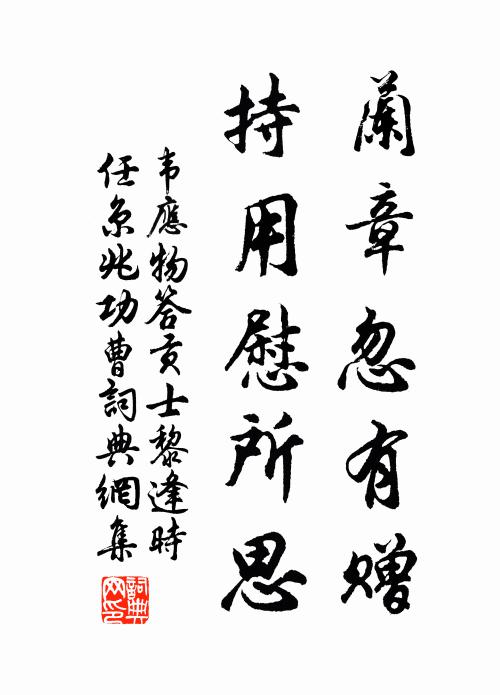 蘭章忽有贈
持用慰所思
韦應物答贡士黎逢時
任京兆功曹詞典網集
詞典
网印